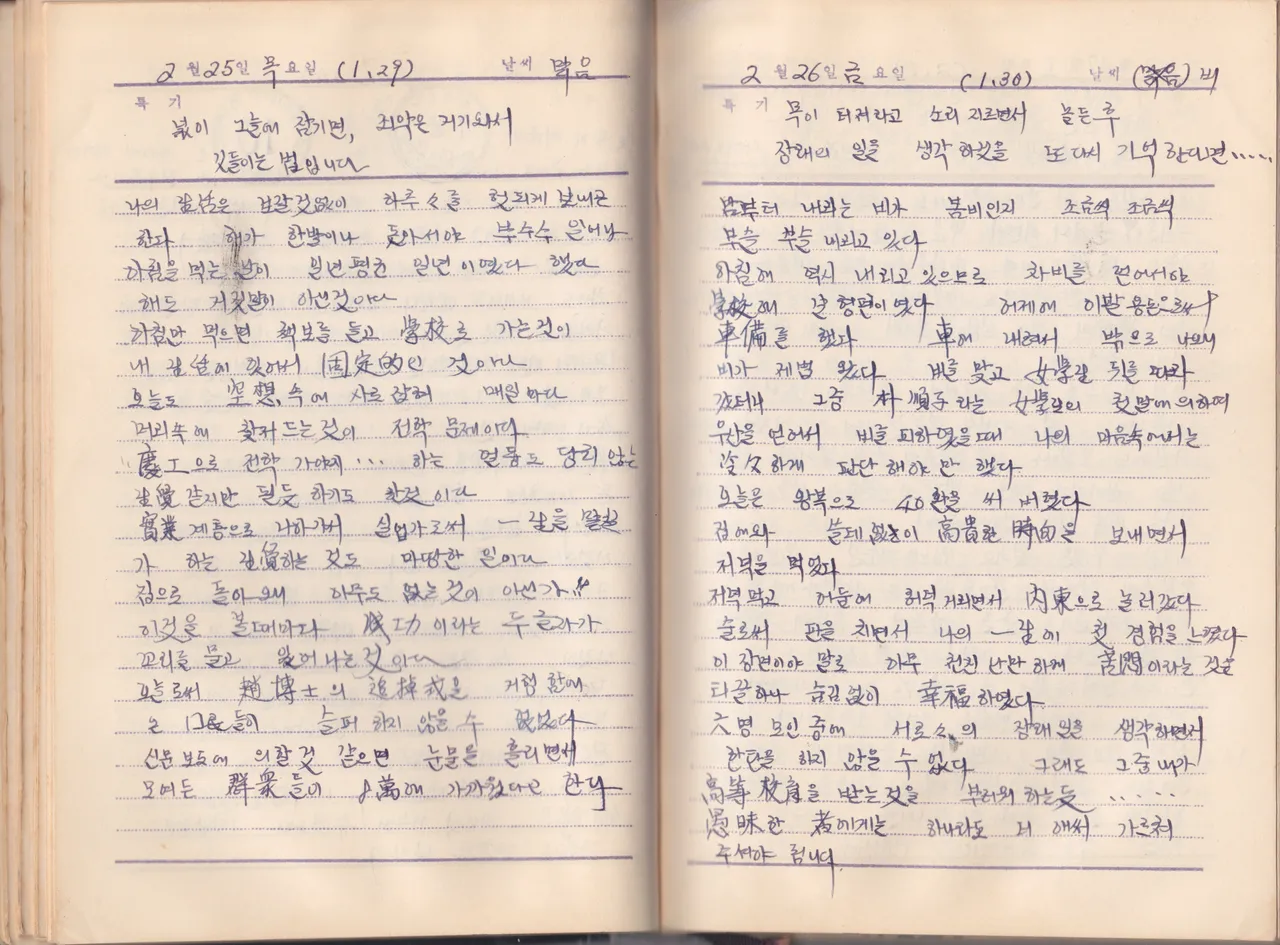 2월 25일 목요일 (1.29) 날씨 맑음
특기
넋이 그늘에 잠기면, 죄악은 거기와서
깃들이는 법입니다
나의 生活은 보잘것없이 하루々를 헛되게 보내곤
한다 해가 한발이나 돗아서야 부수수 일어나
아침을 먹는 날이 일년평균 일년이였다 했다
해도 거짓말이 아닌것이다
아침만 먹으면 책보를 들고 學校로 가는것이
내 실에 있어서 固定的인 것이다
오늘도 空想속에 사로잡혀 매일마다
머리속에 찾저드는것이 전학 문제이다
慶工으로 전학 가야지... 하는 열풍도 당치 않는
生覺 같지만 될듯하기도 한것이다
實業계통으로 나아가서 실업가로써 一生을 맡길
가 하는 生覺하는것도 마땅한 일이다
집으로 돌아오니 아무도 없는것이 아닌가〃
이것을 볼때마다 成功이라는 두글자가
꼬리를 물고 일어나는것이다
오늘로써 趙博士의 追悼式을 거행함에
는 口民들이 슬퍼하지 않을수 없었다
신문보도에 의할것 같으면 눈물을 흘리면서
모여든 群衆들이 8萬에 가까웠다고 한다
2월 26일 금요일 (1.30) 날씨 (맑음) 비
특기
목이 터져라고 소리 지르면서 물든후
장래의 일을 생각하였을 또다시 기억한다면.....
밤부터 내리는 비가 봄비인지 조금씩 조금씩
부슬 부슬 내리고 있다
아침에 역시 내리고 있으므로 차비를 얻어서야
學校에 갈 형편이였다 어제에 이발용돈으로써
車備를 했다 車에 내려서 밖으로 나오니
비가 제법 왔다 비를 맞고 女學生 뒤를 따라
갔더니 그중 朴順子라는 女學生의 말에 의하여
우산을 얻어서 비를 피하였을때 나의 마음속에서는
冷々하게 판단해야만 했다
오늘은 왕복으로 40환을 써 버렸다
집에와 쓸데없이 高貴한 時間을 보내면서
저녁을 먹었다
저녁먹고 어둠에 허덕거리면서 內東으로 놀러갔다
술로써 판을 치면서 나의 一生에 첫 경험을 느꼈다
이 장면이야 말로 아무 천진난만하게 苦悶이라는 것을
티끌하나 숨김없이 幸福하였다
六명 모인중에 서로々의 장래일을 생각하면서
한탄을 하지 않을수 없다 그래도 그중 내가
高等校育을 받는것을 부러워 하는듯 .....
愚昧한 者에게는 하나라도 더 애써 가르쳐
주셔야 됩니다.